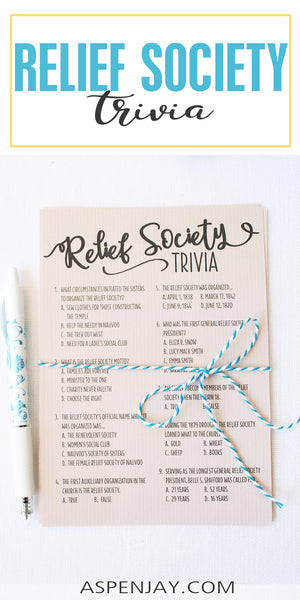 RELIEF SOCIETY
trivia
Relief Society
TRIVIA
1. WHAT CIRCUMSTANCES INITIATED THE SISTERS
TO ORGANIZE THE RELIEF SOCIETY?
A. SEW CLOTHES FOR THOSE CONSTRUCTING
THE TEMPLE
B. HELP THE NEEDY IN NAUVOO
C. THE TREK OUT WEST
D. NEED FOR A LADIES SOCIAL CLUB
2. WHAT IS THE RELIEF SOCIETY MOTTO?
A. FAMILIES ARE FOREVER
B. MINISTER TO THE ONE
C. CHARITY NEVER FAILETH
D. CHOOSE THE RIGHT
3. THE RELIEF SOCIETY'S OFFICIAL NAME WHEN IT
WAS ORGANIZED WAS...
A. THE BENEVOLENT SOCIETY
B. WOMEN'S SOCIAL CLUB
C. NAUVOO'S SOCIETY OF SISTERS
D. THE FEMALE RELIEF SOCIETY OF NAUVOO
4. THE FIRST AUXILIARY ORGANIZATION IN THE
CHURCH IS THE RELIEF SOCIETY.
A. TRUE B. FALSE
5. THE RELIEF SOCIETY WAS ORGANIZED...
A. APRIL 5, 1838 B. MARCH 17, 1842
C. JUNE 9, 1844 D. JUNE 12, 1820
6. WHO WAS THE FIRST GENERAL RELIEF SOCIETY
PRESIDENT?
A. ELIZA R. SNOW
B. LUCY MACK SMITH
C. EMMA SMITH
MEMBERS OF THE RELIEF
SOCIETY WHEN 18.
A. TRUE FALSE
THE 1879 DROUGHT THE RELIEF SOCIETY
LOANED WHAT TO THE CHURCH?
A. GOLD B. WHEAT
C. SHEEP D. BOOKS
9. SERVING AS THE LONGEST GENERAL RELIEF SOCIETY
PRESIDENT, BELLE S. SPAFFORD WAS CALLED FOR?
A. 21 YEARS B. 52 YEARS
C. 29 YEARS D. 16 YEARS
ASPENJAY.COM